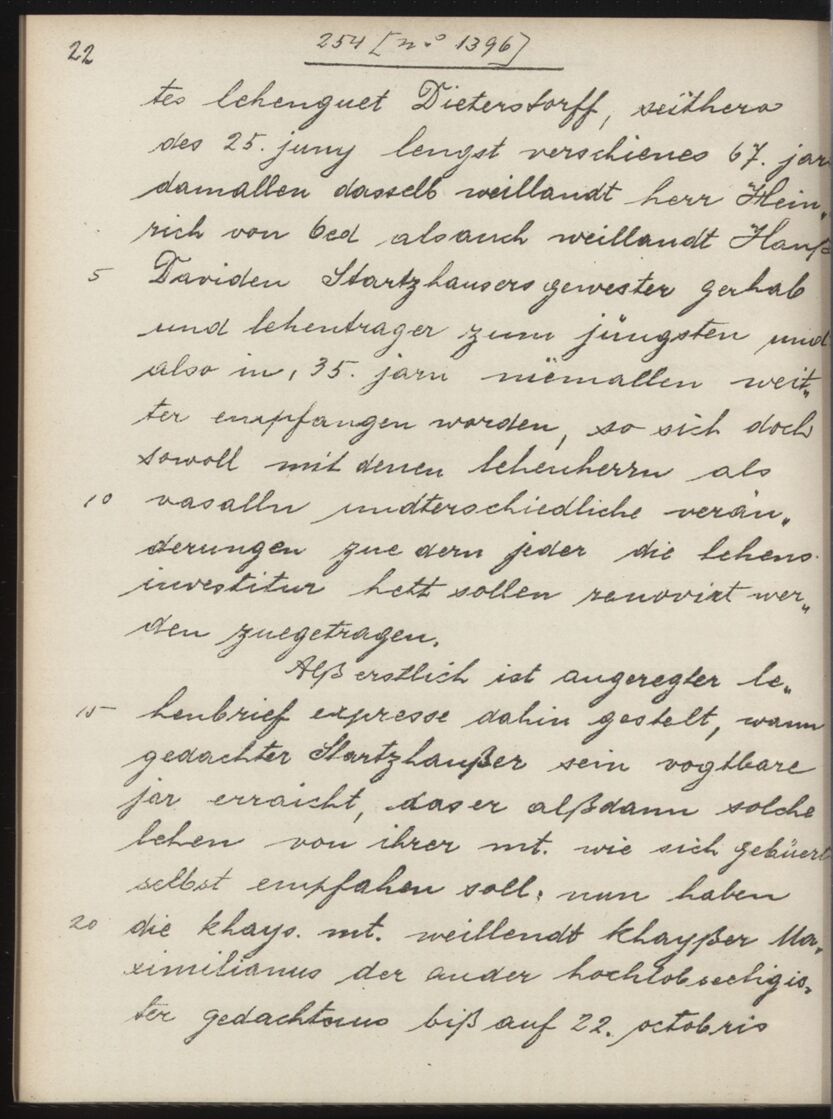 22
254 [n.° 1396]
tes lehenguet Dieterstorff, seithero
des 25. juny lengst verschienes 67. jar
damallen dasselb weillandt herr Hein„
rich von Ëed alsauch weillandt Hanß
5 Daviden Startzhausers gewester gerhab
und lehentrager zum jüngsten und
also in, 35. jarn niemallen weit„
ter empfangen worden, so sich doch
sowoll mit denen lehenherrn als
10 vasalln undterschiedliche verän„
derungen zue dern jeder die lehens
investitur hett sollen renovirt wer„
den zuegetragen.
Alß erstlich ist angeregter le„
15 henbrief expresse dahin gestelt, wann
gedachter Startzhaußer sein vogtbare
jar erraicht, das er alßdann solche
lehen von ihrer mt. wie sich gebüert
selbst empfahen soll; nun haben
20 die khays. mt. weillendt khayßer Ma„
ximilianus der ander hochlobseeligis„
ter gedachtnus biß auf 22. octobris